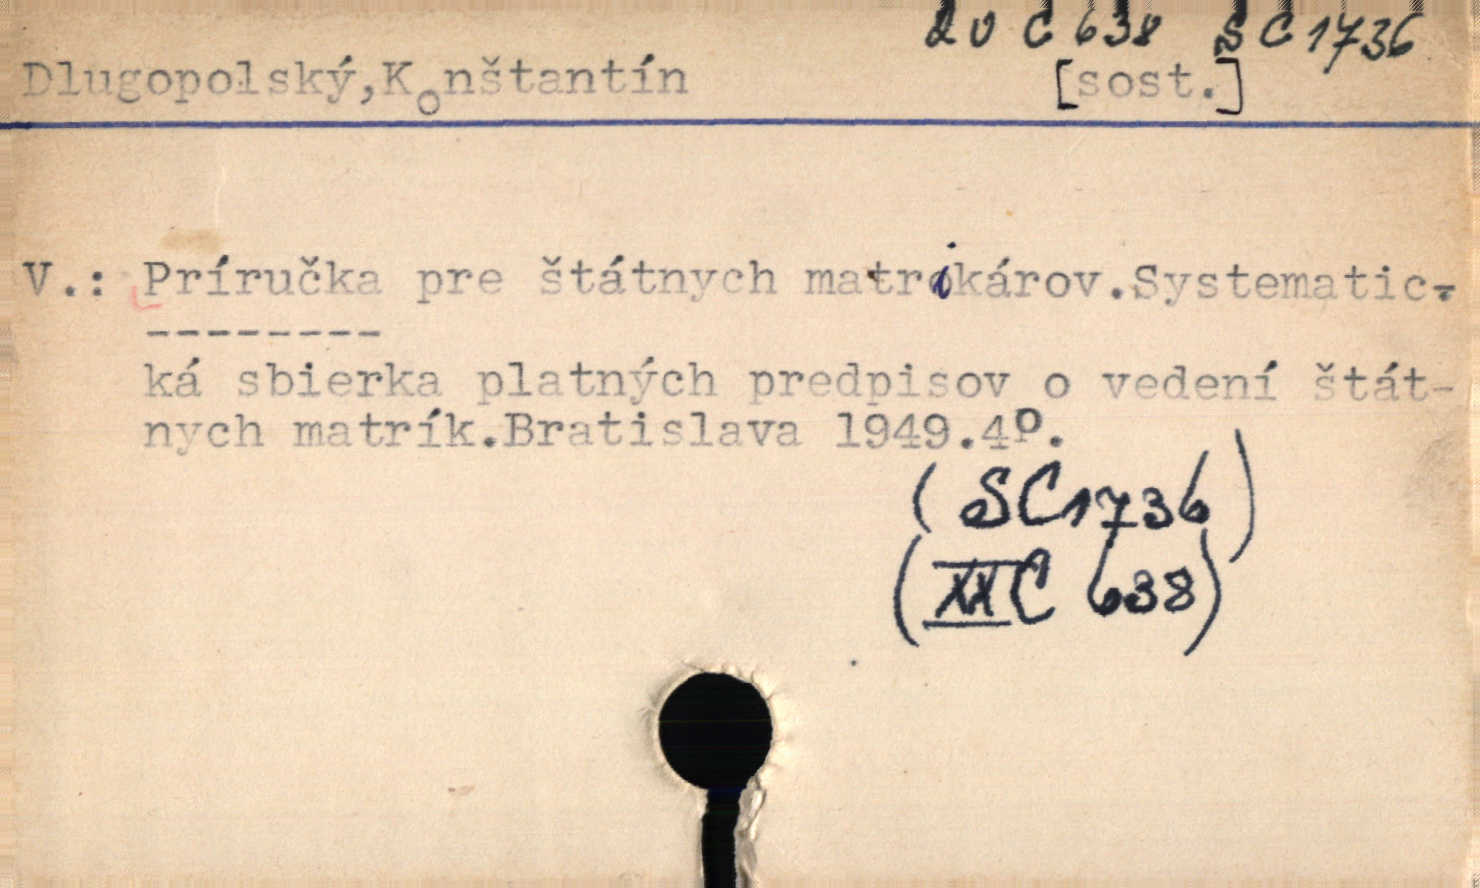 20 C 638 SC1736
Dlugopolský,Konštantín [sost.]
V.: Príručka pre štátnych matrikárov.Systematic-
--------
ká sbierka platných predpisov o vedení štát-
nych matrík.Bratislava 1949.4º.
(SC1736)
(XX C 638)